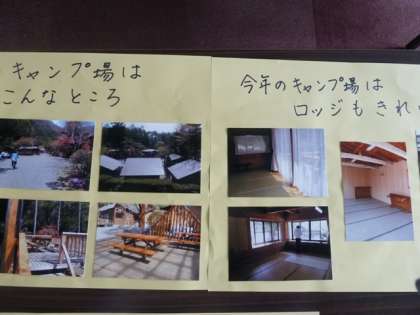 キャンプ場は
こんなところ
今年のキャンプ場は
ロッジもきれ